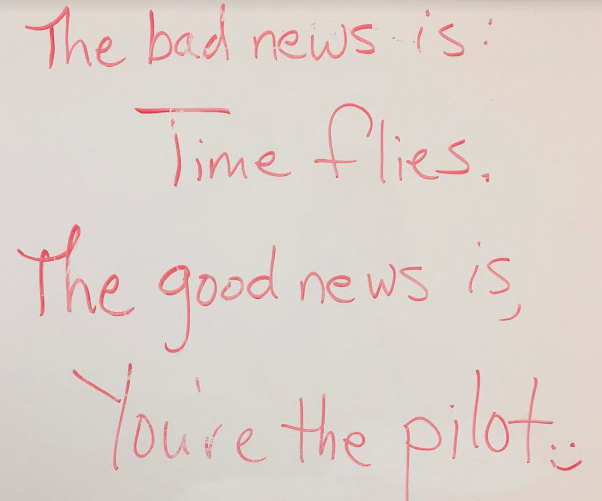 The bad news is:
Time flies.
The good news is,
You're the pilot. :)